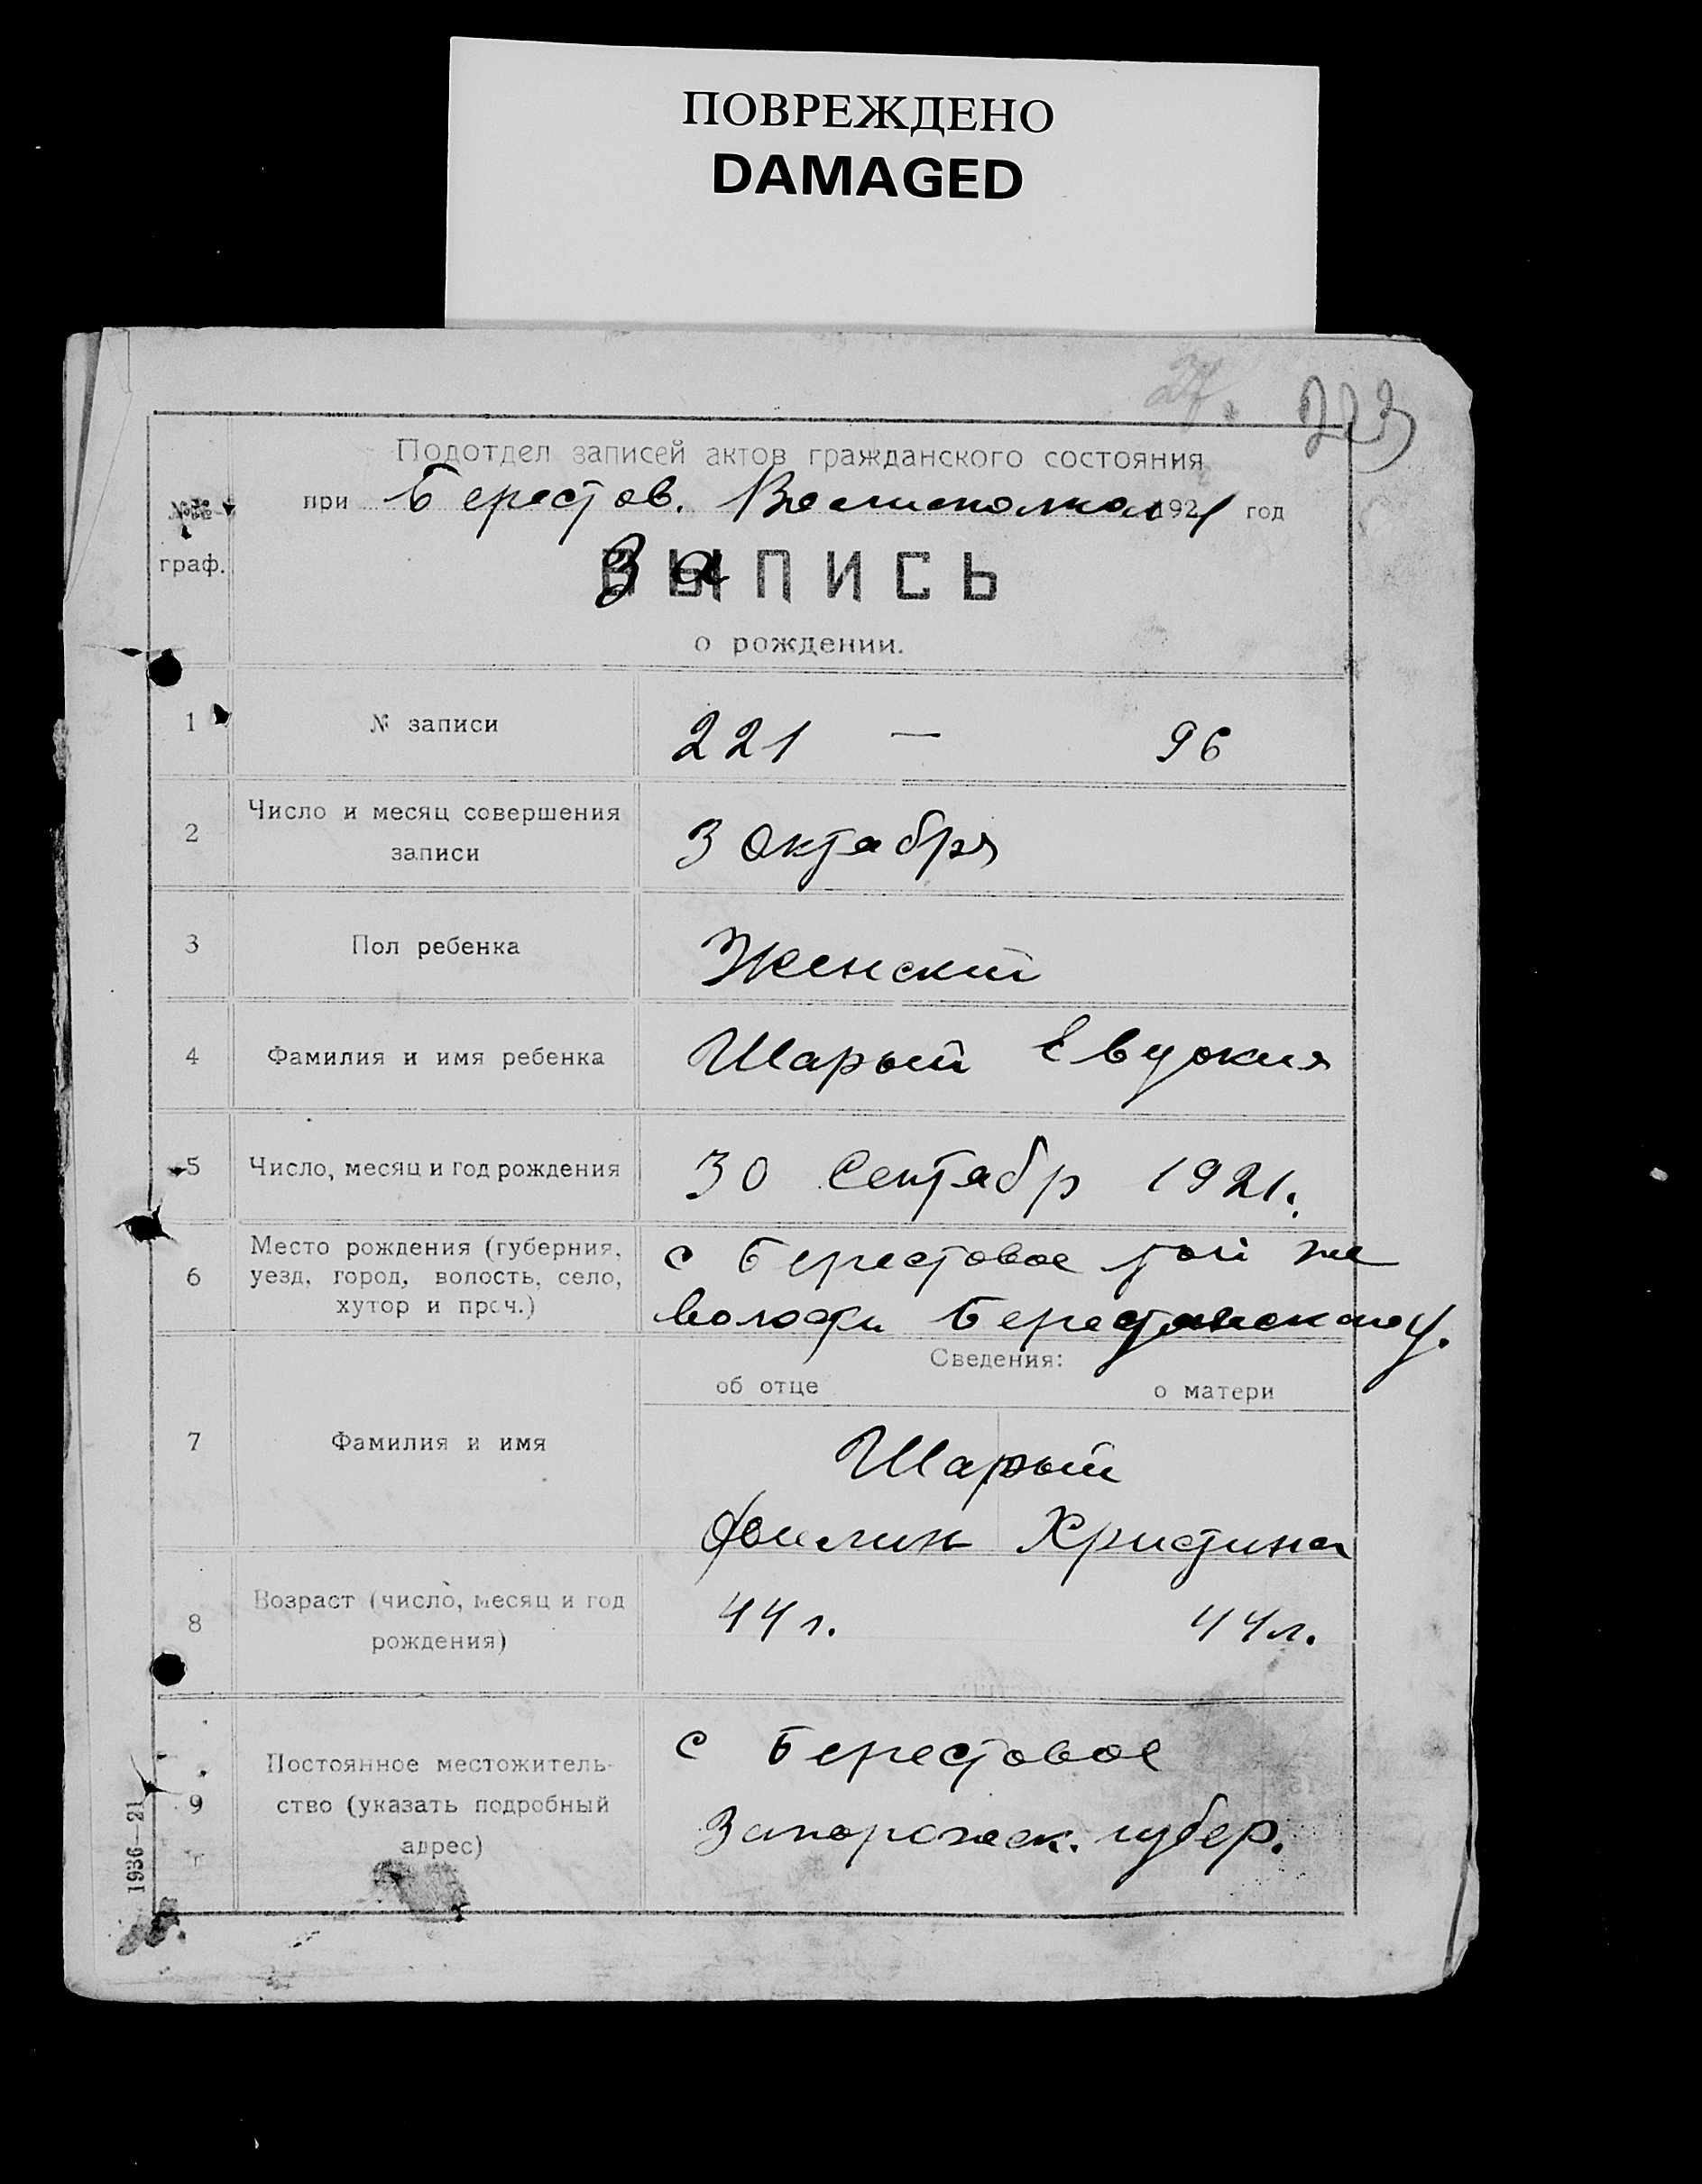 ПОВРЕЖДЕНО
DAMAGED
223
Подотдел записей актов гражданского состояния
при Берестов. Волисполкома 1921 год
№№
граф.
Запись
о рождении.
1 № записи 221 — 96
2 Число и месяц совершения
записи 3 октября
3 Пол ребенка Женский
4 Фамилия и имя ребенка Шарый Евдокия
5 Число, месяц и год рождения 30 Сентябр 1921.
6 Место рождения (губерния,
уезд, город, волость, село,
хутор и проч.)
с Берестовое той же
волости Бердянского у.
Сведения:
об отце о матери
7 Фамилия и имя
Шарый
Христина
8 Возраст (число, месяц и год
рождения)
44 г. 44 л.
9 Постоянное местожитель-
ство (указать подробный
адрес)
с Берестовое
Запорожск. губер.
1936—21